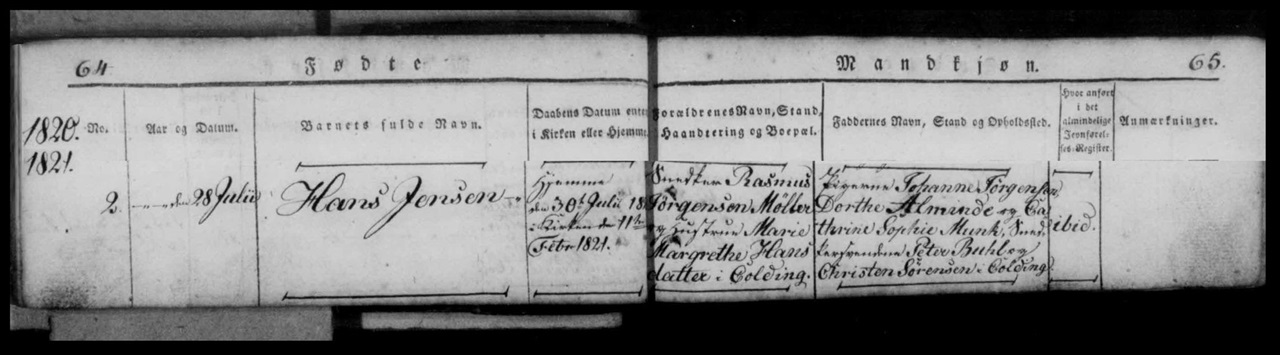 64
Fødte
Mandkjøn.
65.
1820.
1821.
No.
Aar og Datum.
Barnets fulde Navn.
Daabens Datum enten
i Kirken eller Hjemme.
Forældrenes Navn, Stand,
Haandtering og Boepæl.
Faddernes Navn, Stand og Opholdsted.
Hvor anført
i det
almindelige
Jevnførel-
ses-Register.
Anmærkninger.
2.
den 28 Julii
Hans Jensen
Hjemme
den 30te Julii 18
i Kirken d 11te
Febr 1821.
Snedker Rasmus
Jörgensen Möller
og Hustrue Marie
Margrethe Hans
datter i Colding.
Pigerne Johanne Jörgensen
Dorthe Alminde og Ca
thrine Sophie Munk, Sned
kersvendene Peter Buhl og
Christen Sörensen i Colding
ibid.